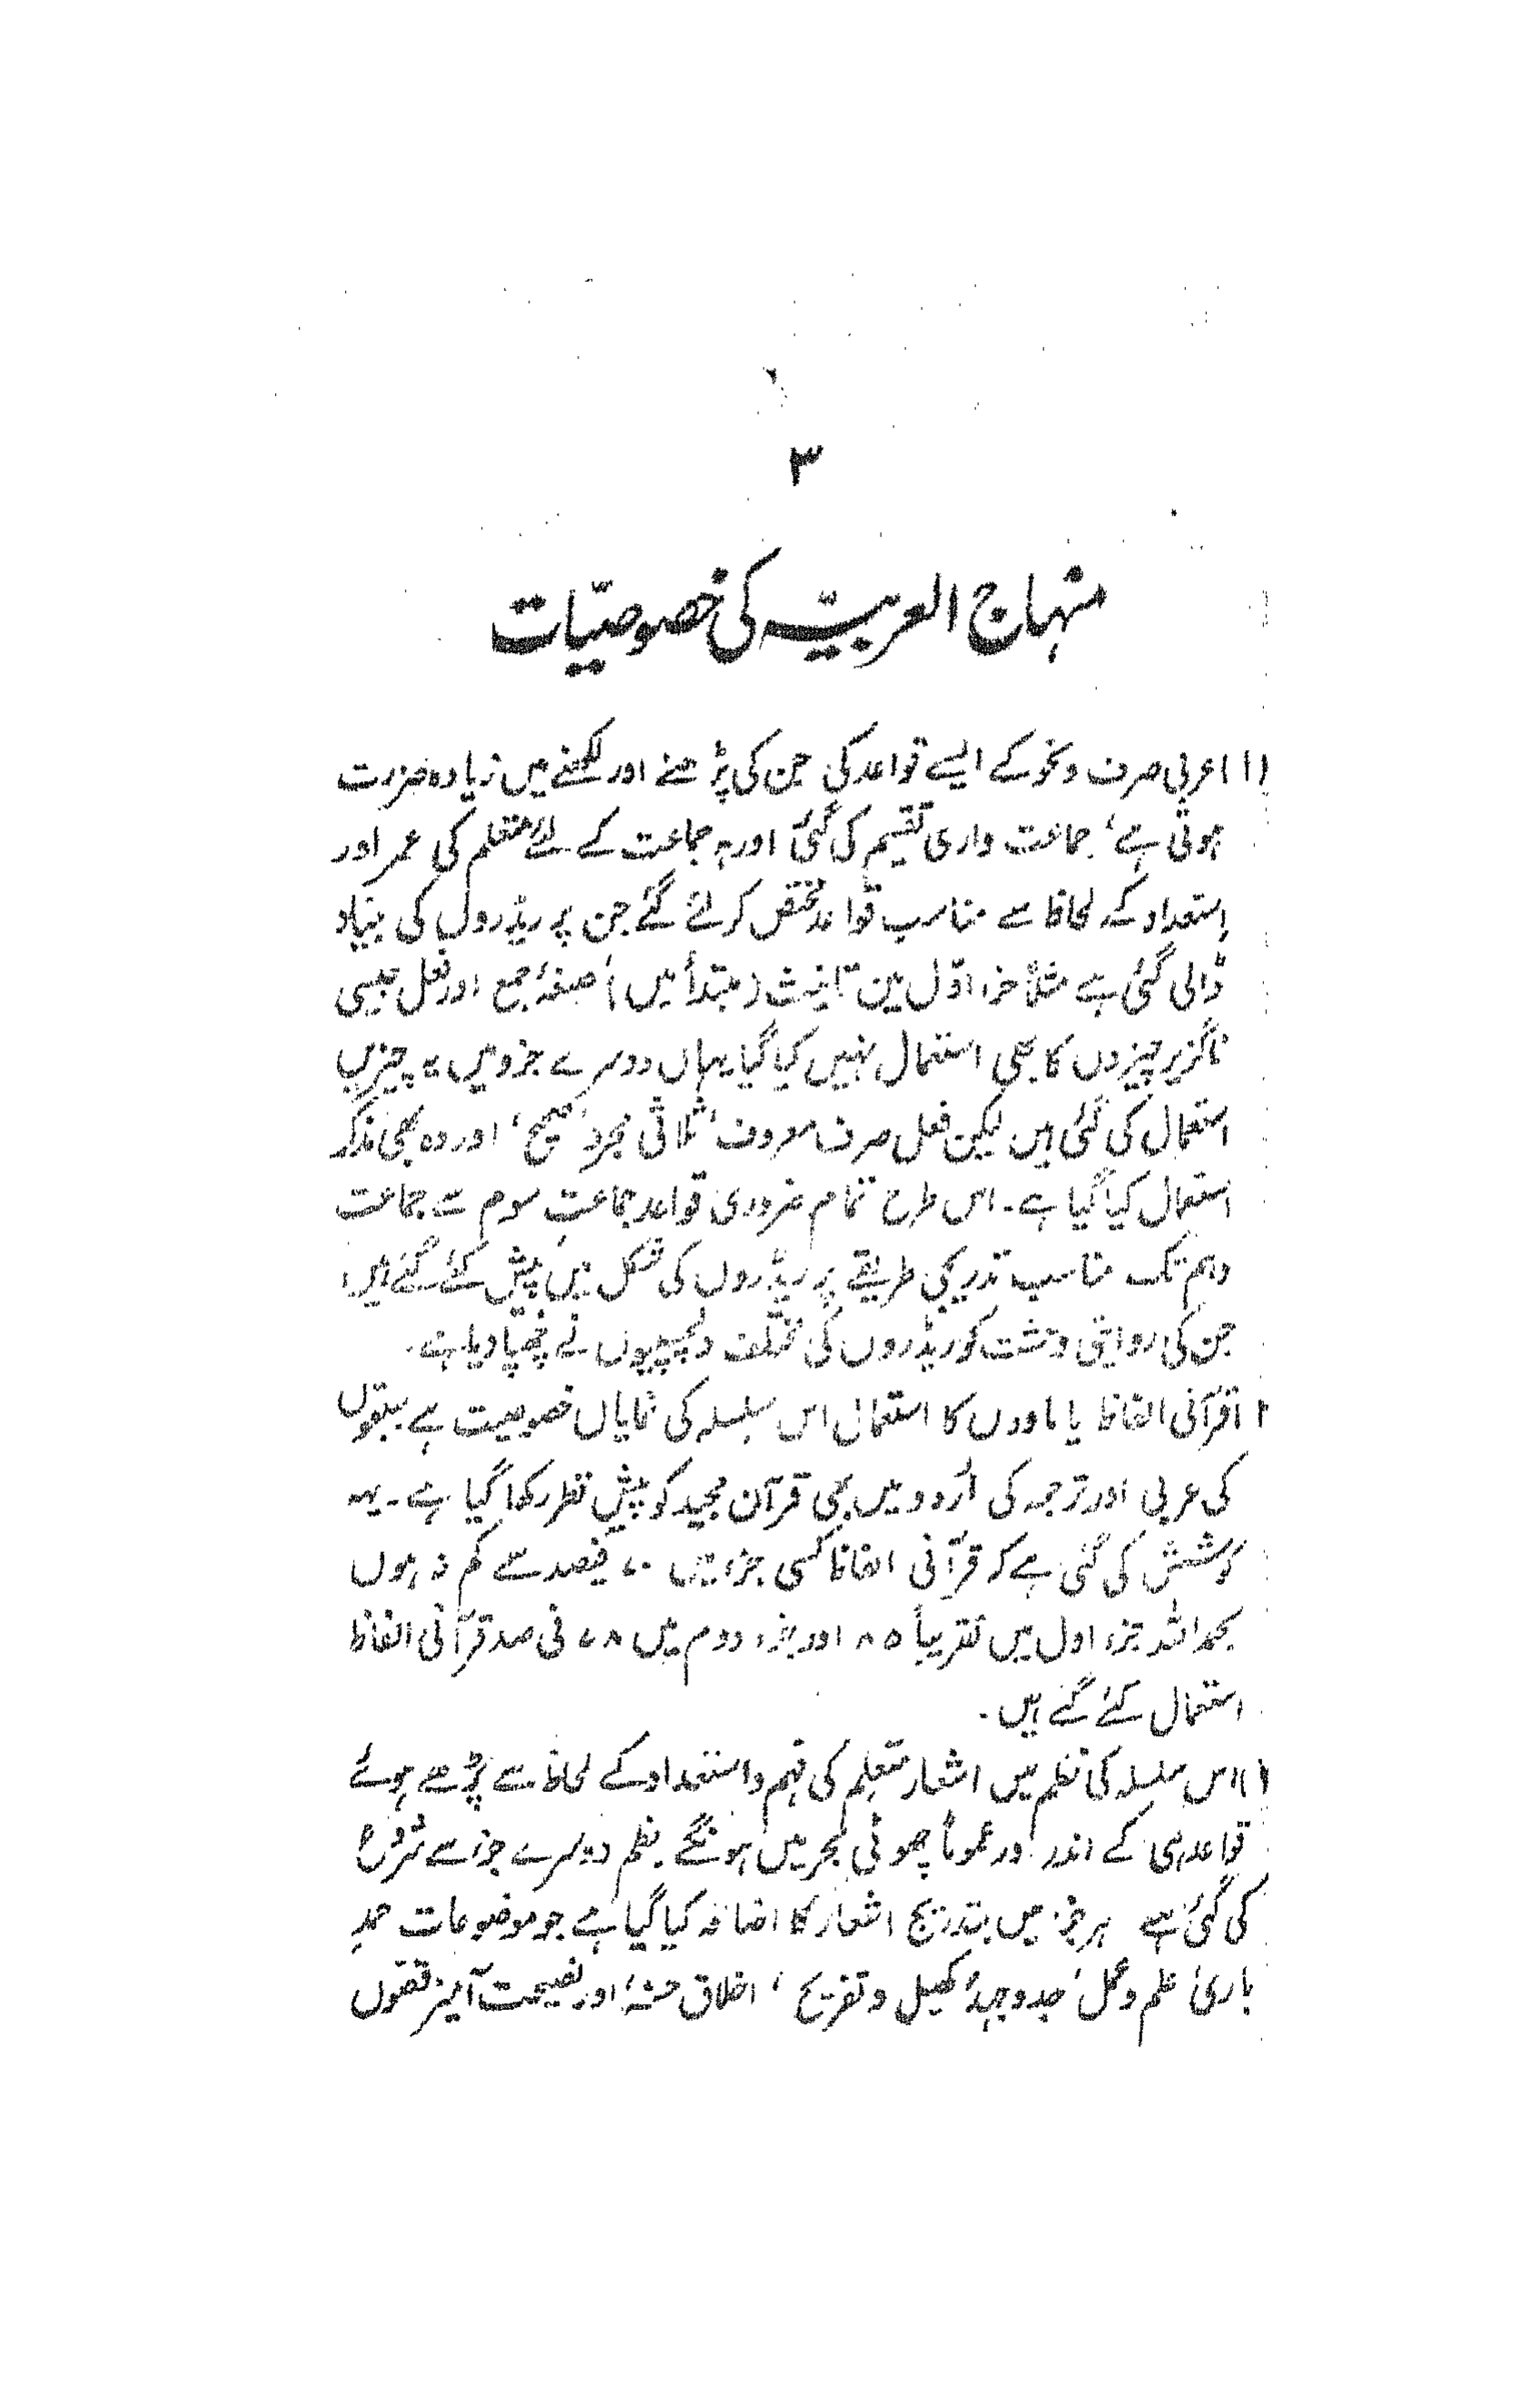 ۳
منہاج العربیہ کی خصوصیّات
(۱) عربی صرف ونحو کے ایسے قواعد کی جن کی پڑھنے اور لکھنے میں زیادہ ضرورت
ہوتی ہے، جماعت واری تقسیم کی گئی اور ہر جماعت کے لئے متعلم کی عمر اور
استعداد کے لحاظ سے مناسب قواعد مختص کرلئے گئے جن پر ریڈروں کی بنیاد
ڈالی گئی ہے مثلاً جزء اوّل میں تانیث (مبتدأ میں) صیغۂ جمع اور فعل جیسی
ناگزیر چیزوں کا بھی استعمال نہیں کیا گیا۔ ہاں دوسرے جزو میں یہ چیزیں
استعمال کی گئی ہیں لیکن فعل صرف معروف، ثلاثی مجرد، صحیح، اور وہ بھی مذکر
استعمال کیا گیا ہے۔ اس طرح تمام ضروری قواعد جماعتِ سوم سے جماعت
دہم تک مناسب تدریجی طریقے پر ریڈروں کی شکل میں پیش کئے گئے ہیں،
جن کی روایتی وحشت کو ریڈروں کی مختلف دلچسپیوں نے چُھپا دیا ہے۔
۲) قرآنی الفاظ یا مادوں کا استعمال اس سلسلہ کی نمایاں خصوصیت ہے سبقوں
کی عربی اور ترجمہ کی اُردو میں بھی قرآن مجید کو پیشِ نظر رکھا گیا ہے۔ یہہ
کوشش کی گئی ہے کہ قرآنی الفاظ کسی جزء میں ۷۰ فیصد سے کم نہ ہوں
بحمداللہ جزء اول میں تقریباً ۸۵ اور جزء دوم میں ۷۸ فی صد قرآنی الفاظ
استعمال کئے گئے ہیں۔
(۳) اس سلسلہ کی نظم میں اشعار متعلم کی فہم و استعداد کے لحاظ سے پڑھے ہوئے
قواعد ہی کے اندر اور عموماً چھوٹی بحر میں ہونگے نظم دوسرے جزء سے شروع
کی گئی ہے ہر جزء میں بتدریج اشعار کا اضافہ کیا گیا ہے جو موضوعات حمدِ
باری، علم و عمل، جدوجہد، کھیل و تفریح، اخلاق حسنہ، اور نصیحت آمیز قصّوں